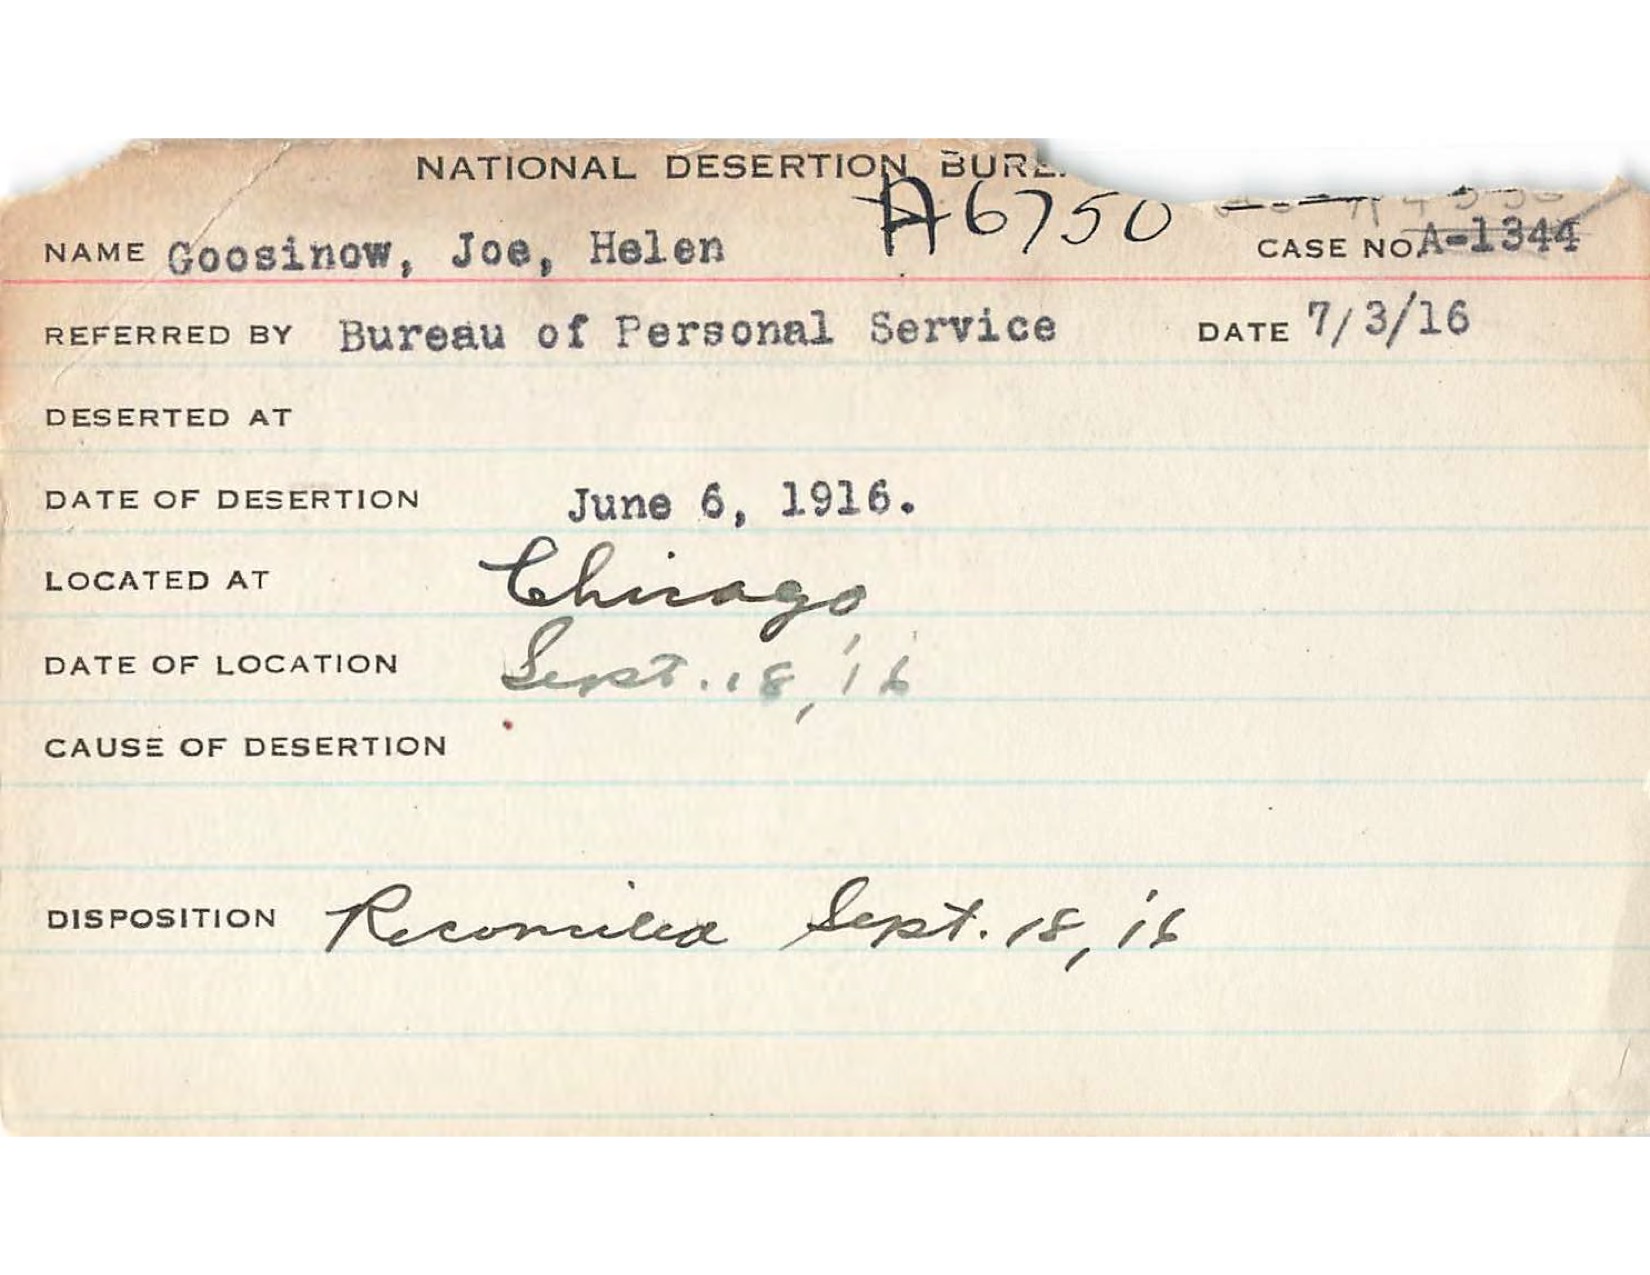 NATIONAL DESERTION BURE
A6750
NAME Goosinow, Joe, Helen CASE NO. A-1344
REFERRED BY Bureau of Personal Service DATE 7/3/16
DESERTED AT
DATE OF DESERTION June 6, 1916.
LOCATED AT Chicago
DATE OF LOCATION Sept. 18, '16
CAUSE OF DESERTION
DISPOSITION Reconciled Sept. 18, '16